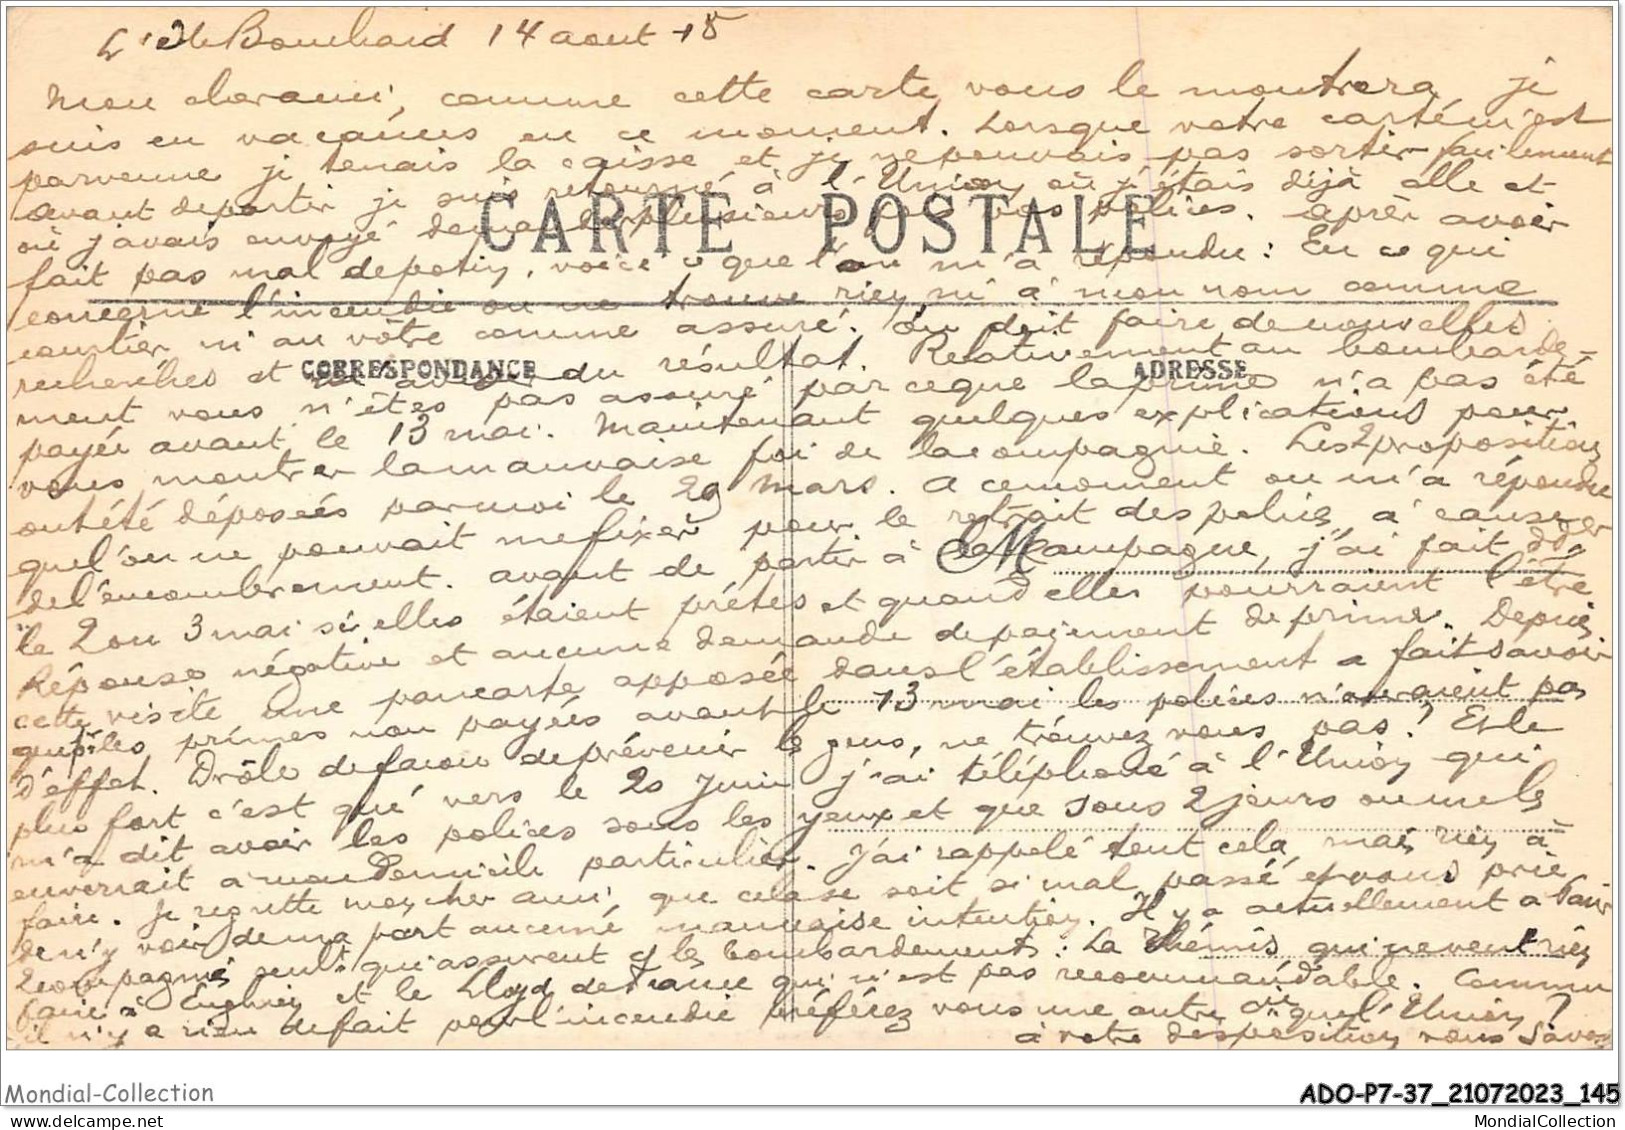 L'Ile Bouchard 14 aout 18
Mon cher ami, comme cette carte vous le montrera, je
suis en vacances en ce moment. Lorsque votre carte m'est
parvenue je tenais la caisse et je ne pouvais pas sortir facilement
avant de partir je suis retourné à l'Union où j'étais déjà allé et
où j'avais envoyé demander plusieurs vos polices. Après avoir
CARTE POSTALE
fait pas mal de potin, voici ce que l'on m'a répondu : En ce qui
concerne l'incendie on ne trouve rien ni à mon nom comme
courtier ni au vôtre comme assuré. On doit faire de nouvelles
recherches et du résultat. Relativement au bombarde-
CORRESPONDANCE
ADRESSE
ment vous n'êtes pas assuré par ce que la prime n'a pas été
payée avant le 13 mai. Maintenant quelques explications pour
vous montrer la mauvaise foi de la compagnie. Les 2 propositions
ont été déposées par moi le 29 mars. A ce moment on m'a répondu
que l'on ne pouvait me fixer pour le retrait des polices à cause
de l'encombrement. Avant de partir à la Campagne, j'ai fait
le 2 ou 3 mai si elles étaient prêtes et quand elles pourraient l'être
Réponse négative et aucune demande de paiement de prime. Depuis
cette visite une pancarte apposée dans l'établissement a fait savoir
que les primes non payées avant le 13 mai les polices n'auraient pas
d'effet. Drôle de facon de prévenir les gens, ne trouvez vous pas ? Et le
plus fort c'est que vers le 20 Juin j'ai téléphoné à l'Union qui
m'a dit avoir les polices sous les yeux et que sous 2 jours on me les
enverrait à mon domicile particulier. J'ai rappelé tout cela, mais rien à
faire. Je regrette mon cher ami, que cela se soit si mal passé et vous prie
de n'y voir de ma part aucune mauvaise intention. Il y a actuellement à Paris
2 compagnies seult qui assurent les bombardements : La Thémis qui ne veut rien
faire à Enghien et le Lloyd de France qui n'est pas recommandable. Comme
il n'y a rien de fait pour l'incendie préférez vous une autre Cie que l'Union ?
à votre desposition vous savez
Mondial-Collection
ADO-P7-37_21072023_145
MondialCollection